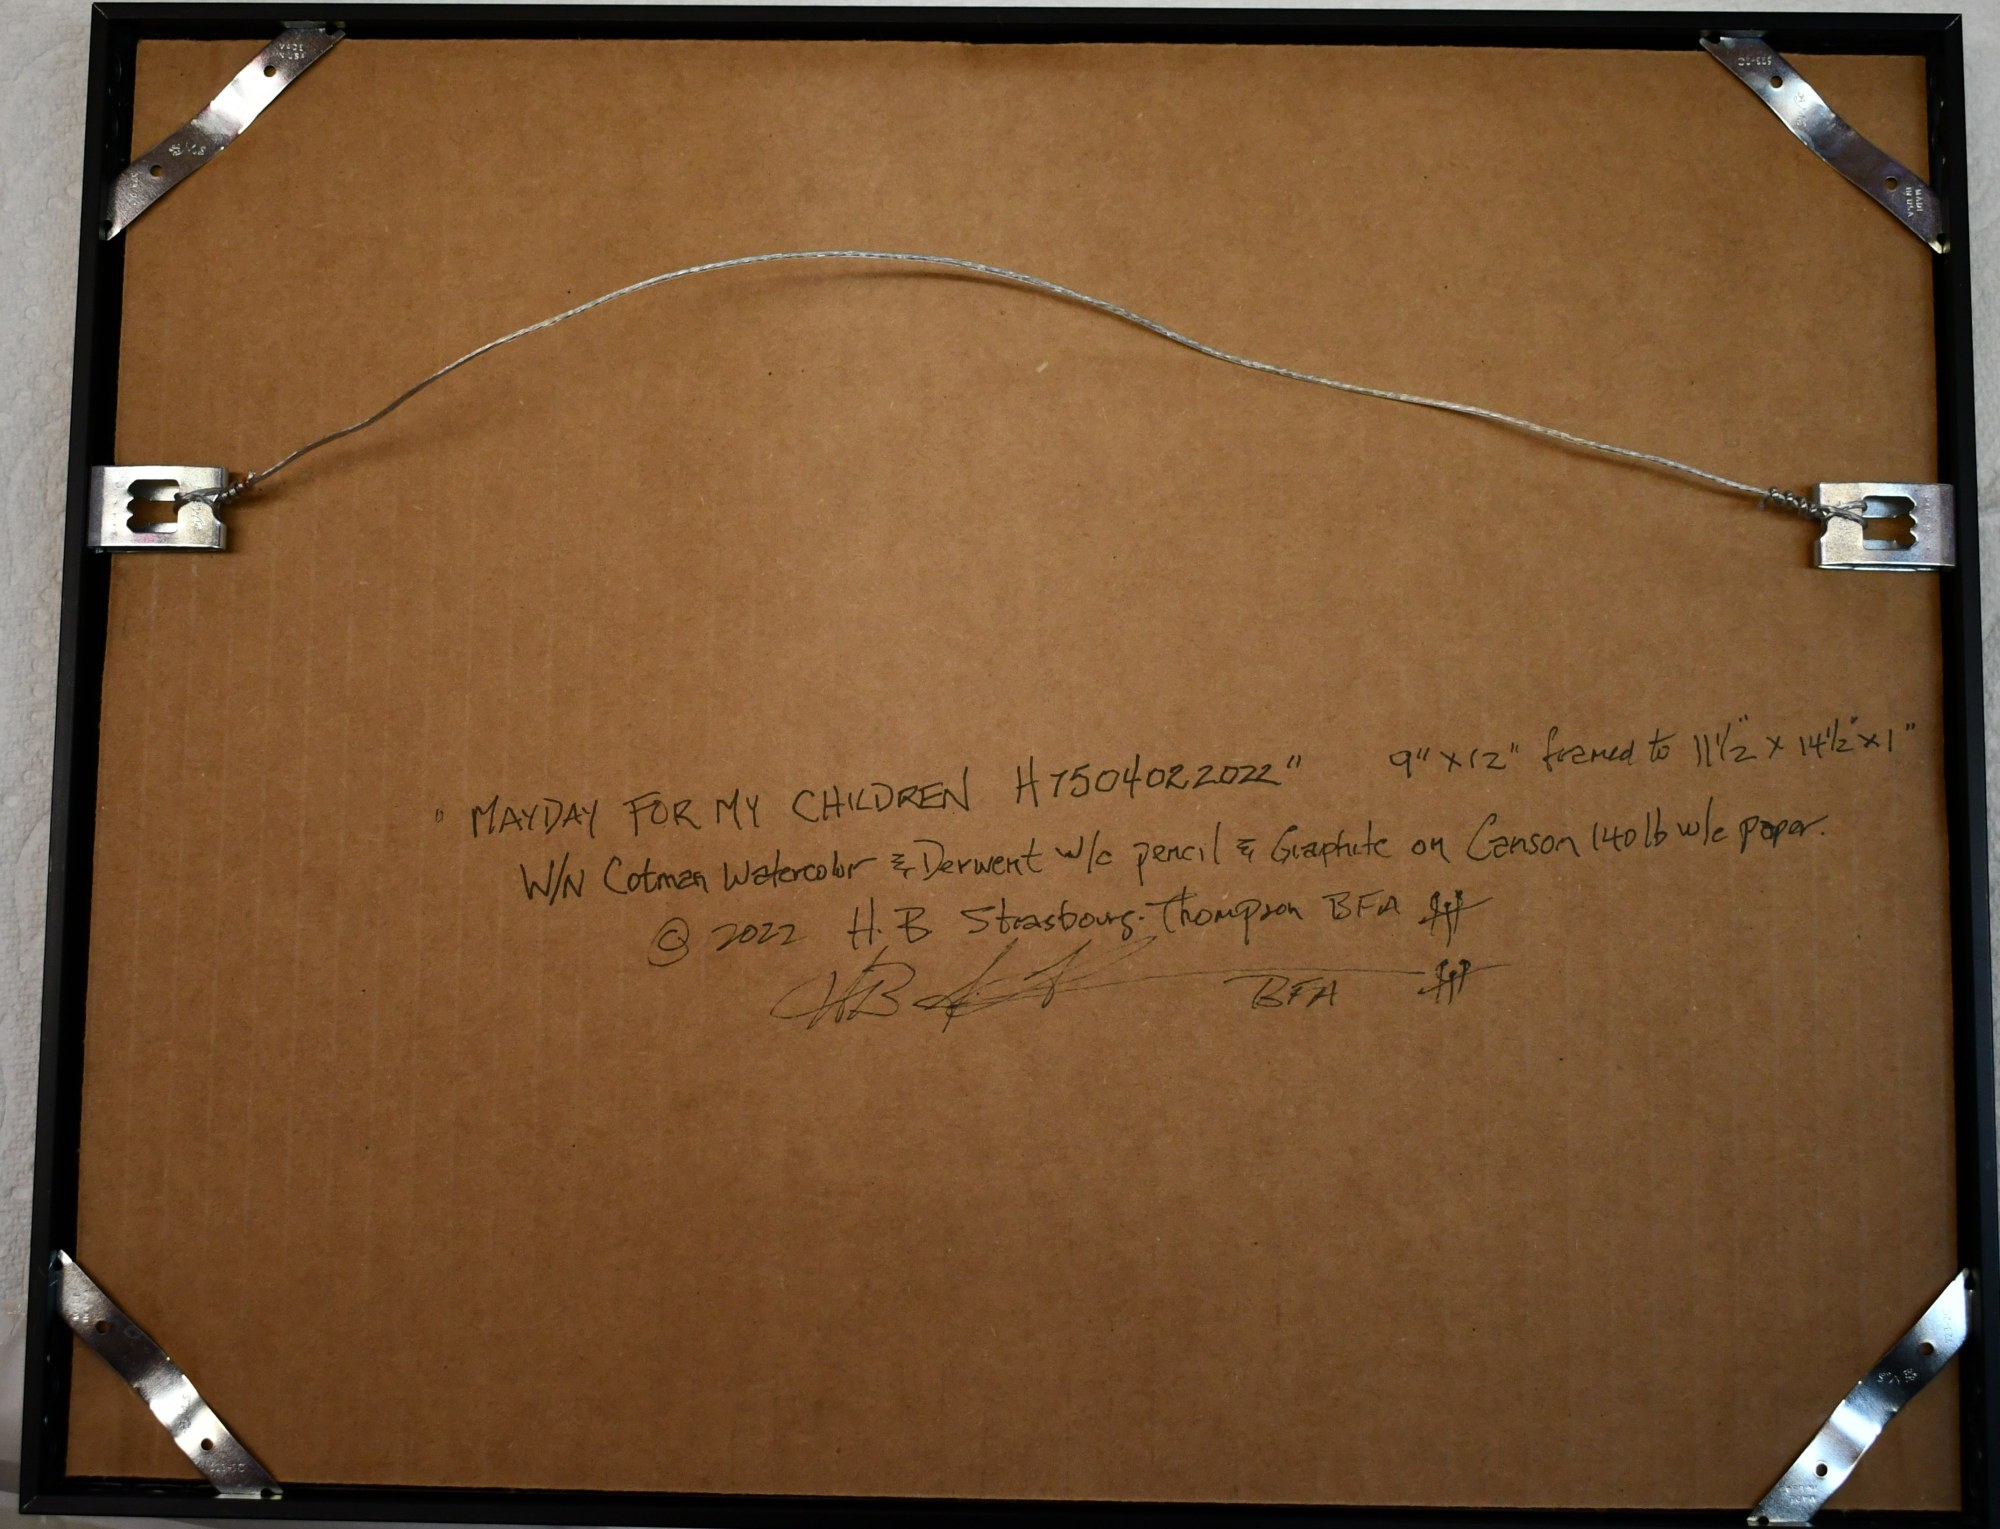 "MAYDAY FOR MY CHILDREN H7504022022" 9" x 12" framed to 11½" x 14½" x 1"
W/N Cotman Watercolor & Derwent w/c pencil & Graphite on Canson 140 lb w/c paper.
© 2022 H.B Strasbourg-Thompson BFA
HB BFA
MADE IN USA